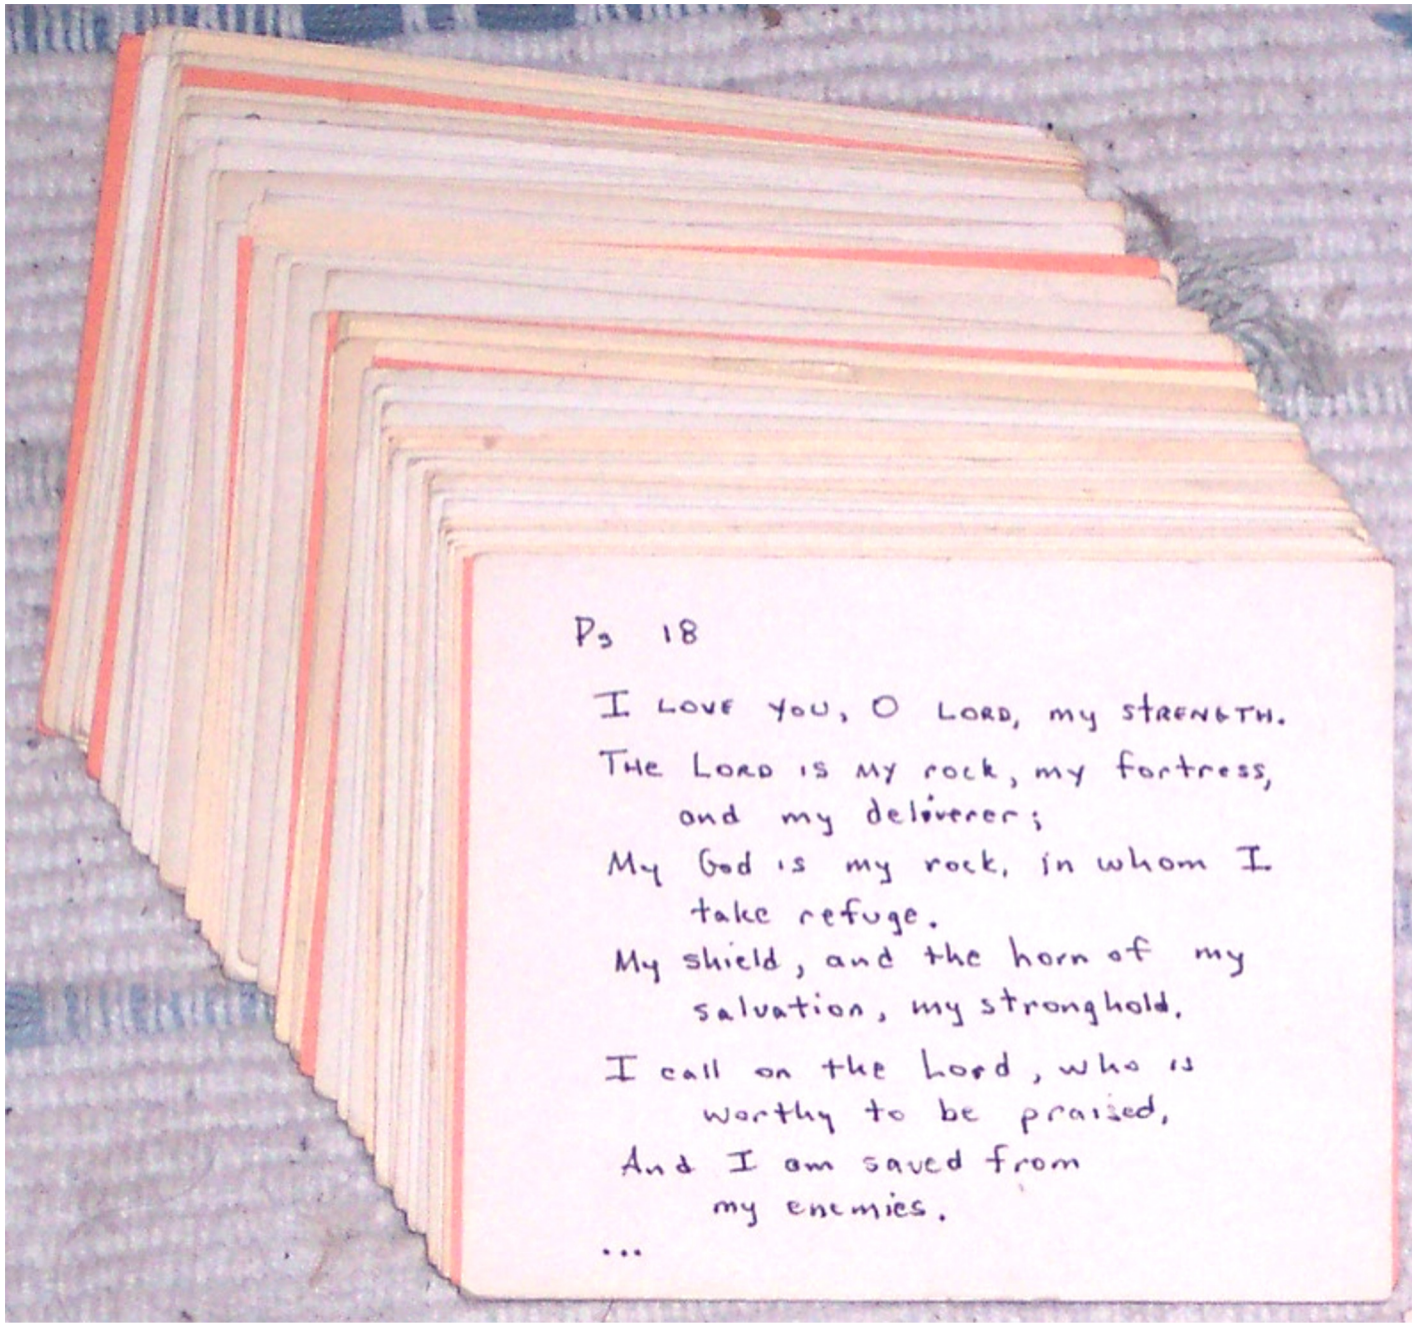 Ps 18
I LOVE YOU, O LORD, my STRENGTH.
THE LORD IS MY rock, my fortress,
and my deliverer;
My God is my rock, in whom I
take refuge.
My shield, and the horn of my
salvation, my stronghold.
I call on the Lord, who is
worthy to be praised,
And I am saved from
my enemies.
...